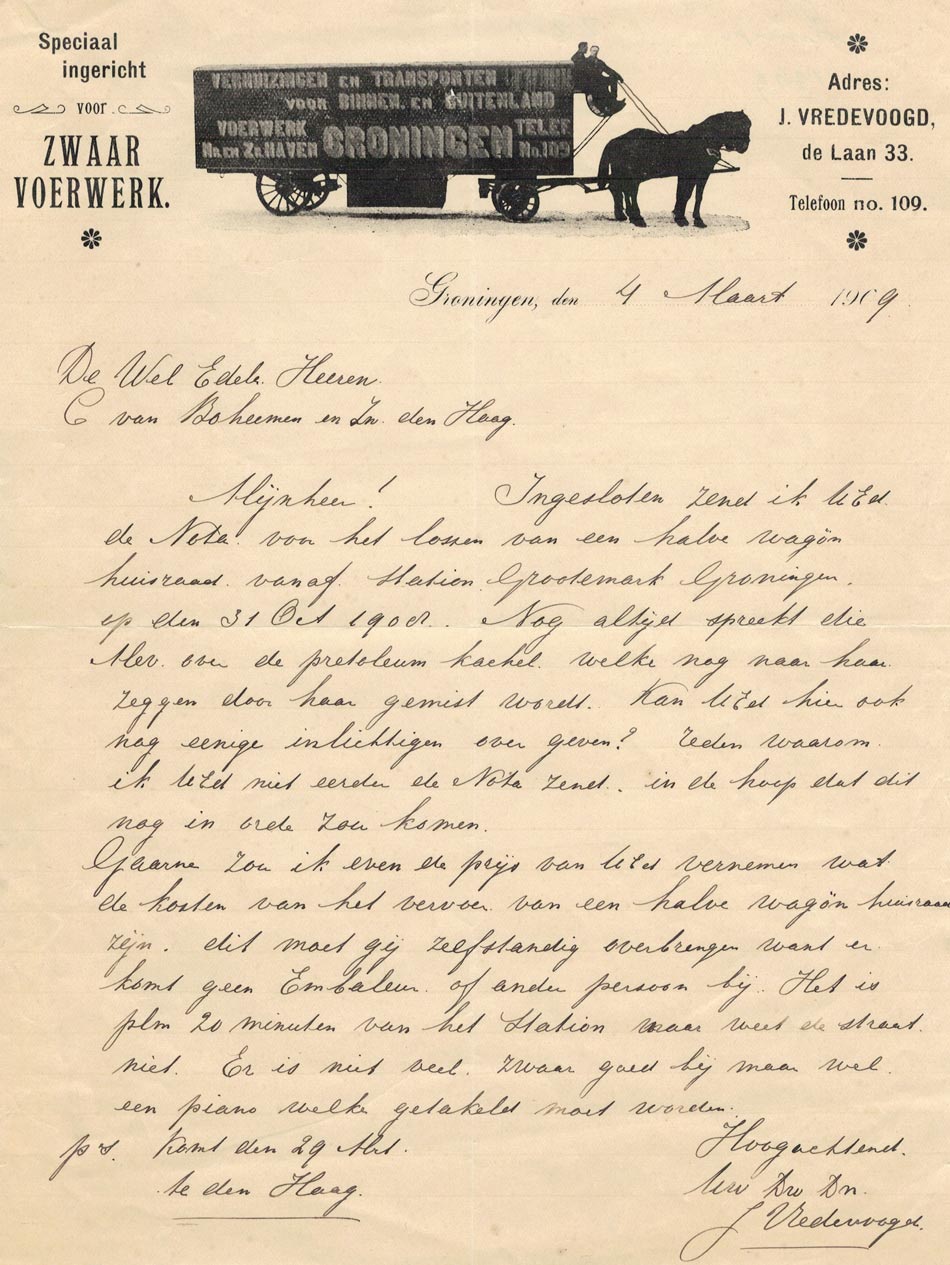 Speciaal
ingericht
voor
ZWAAR
VOERWERK.
VERHUIZINGEN EN TRANSPORTEN
VOOR BINNEN EN BUITENLAND
VOERWERK GRONINGEN TELEF
No. en Zd. HAVEN No. 109
Adres:
J. VREDEVOOGD,
de Laan 33.
Telefoon no. 109.
Groningen, den 4 Maart 1909
De Wel Edele. Heeren.
C van Boheemen en Zn. den Haag.
Mijnheer! Ingesloten zend ik UEd.
de Nota. voor het lossen van een halve wagön
huisraad. vanaf. Station Grootemarkt Groningen.
op den 31 Oct 1908.. Nog altijd spreekt die
Mev. over de pretoleum kachel. welke nog naar haar
zeggen door haar gemist wordt. Kan UEd hier ook
nog eenige inlichtigen over geven? reden waarom.
ik UEd niet eerder de Nota zend. in de hoop dat dit
nog in orde zou komen.
Gaarne zou ik even de prijs van UEd vernemen wat
de kosten van het vervoer. van een halve wagön huisraad
zijn. dit moet gij zelfstandig overbrengen want er.
komt geen Embaleur. of ander persoon bij. Het is
plm 20 minuten van het Station maar weet de straat.
niet. Er is niet veel. zwaar goed bij maar wel.
een piano welke getakeld moet worden.
ps. Komt den 29 Mrt.
te den Haag.
Hoogachtend.
Uw Dw Dn.
J Vredevoogd.